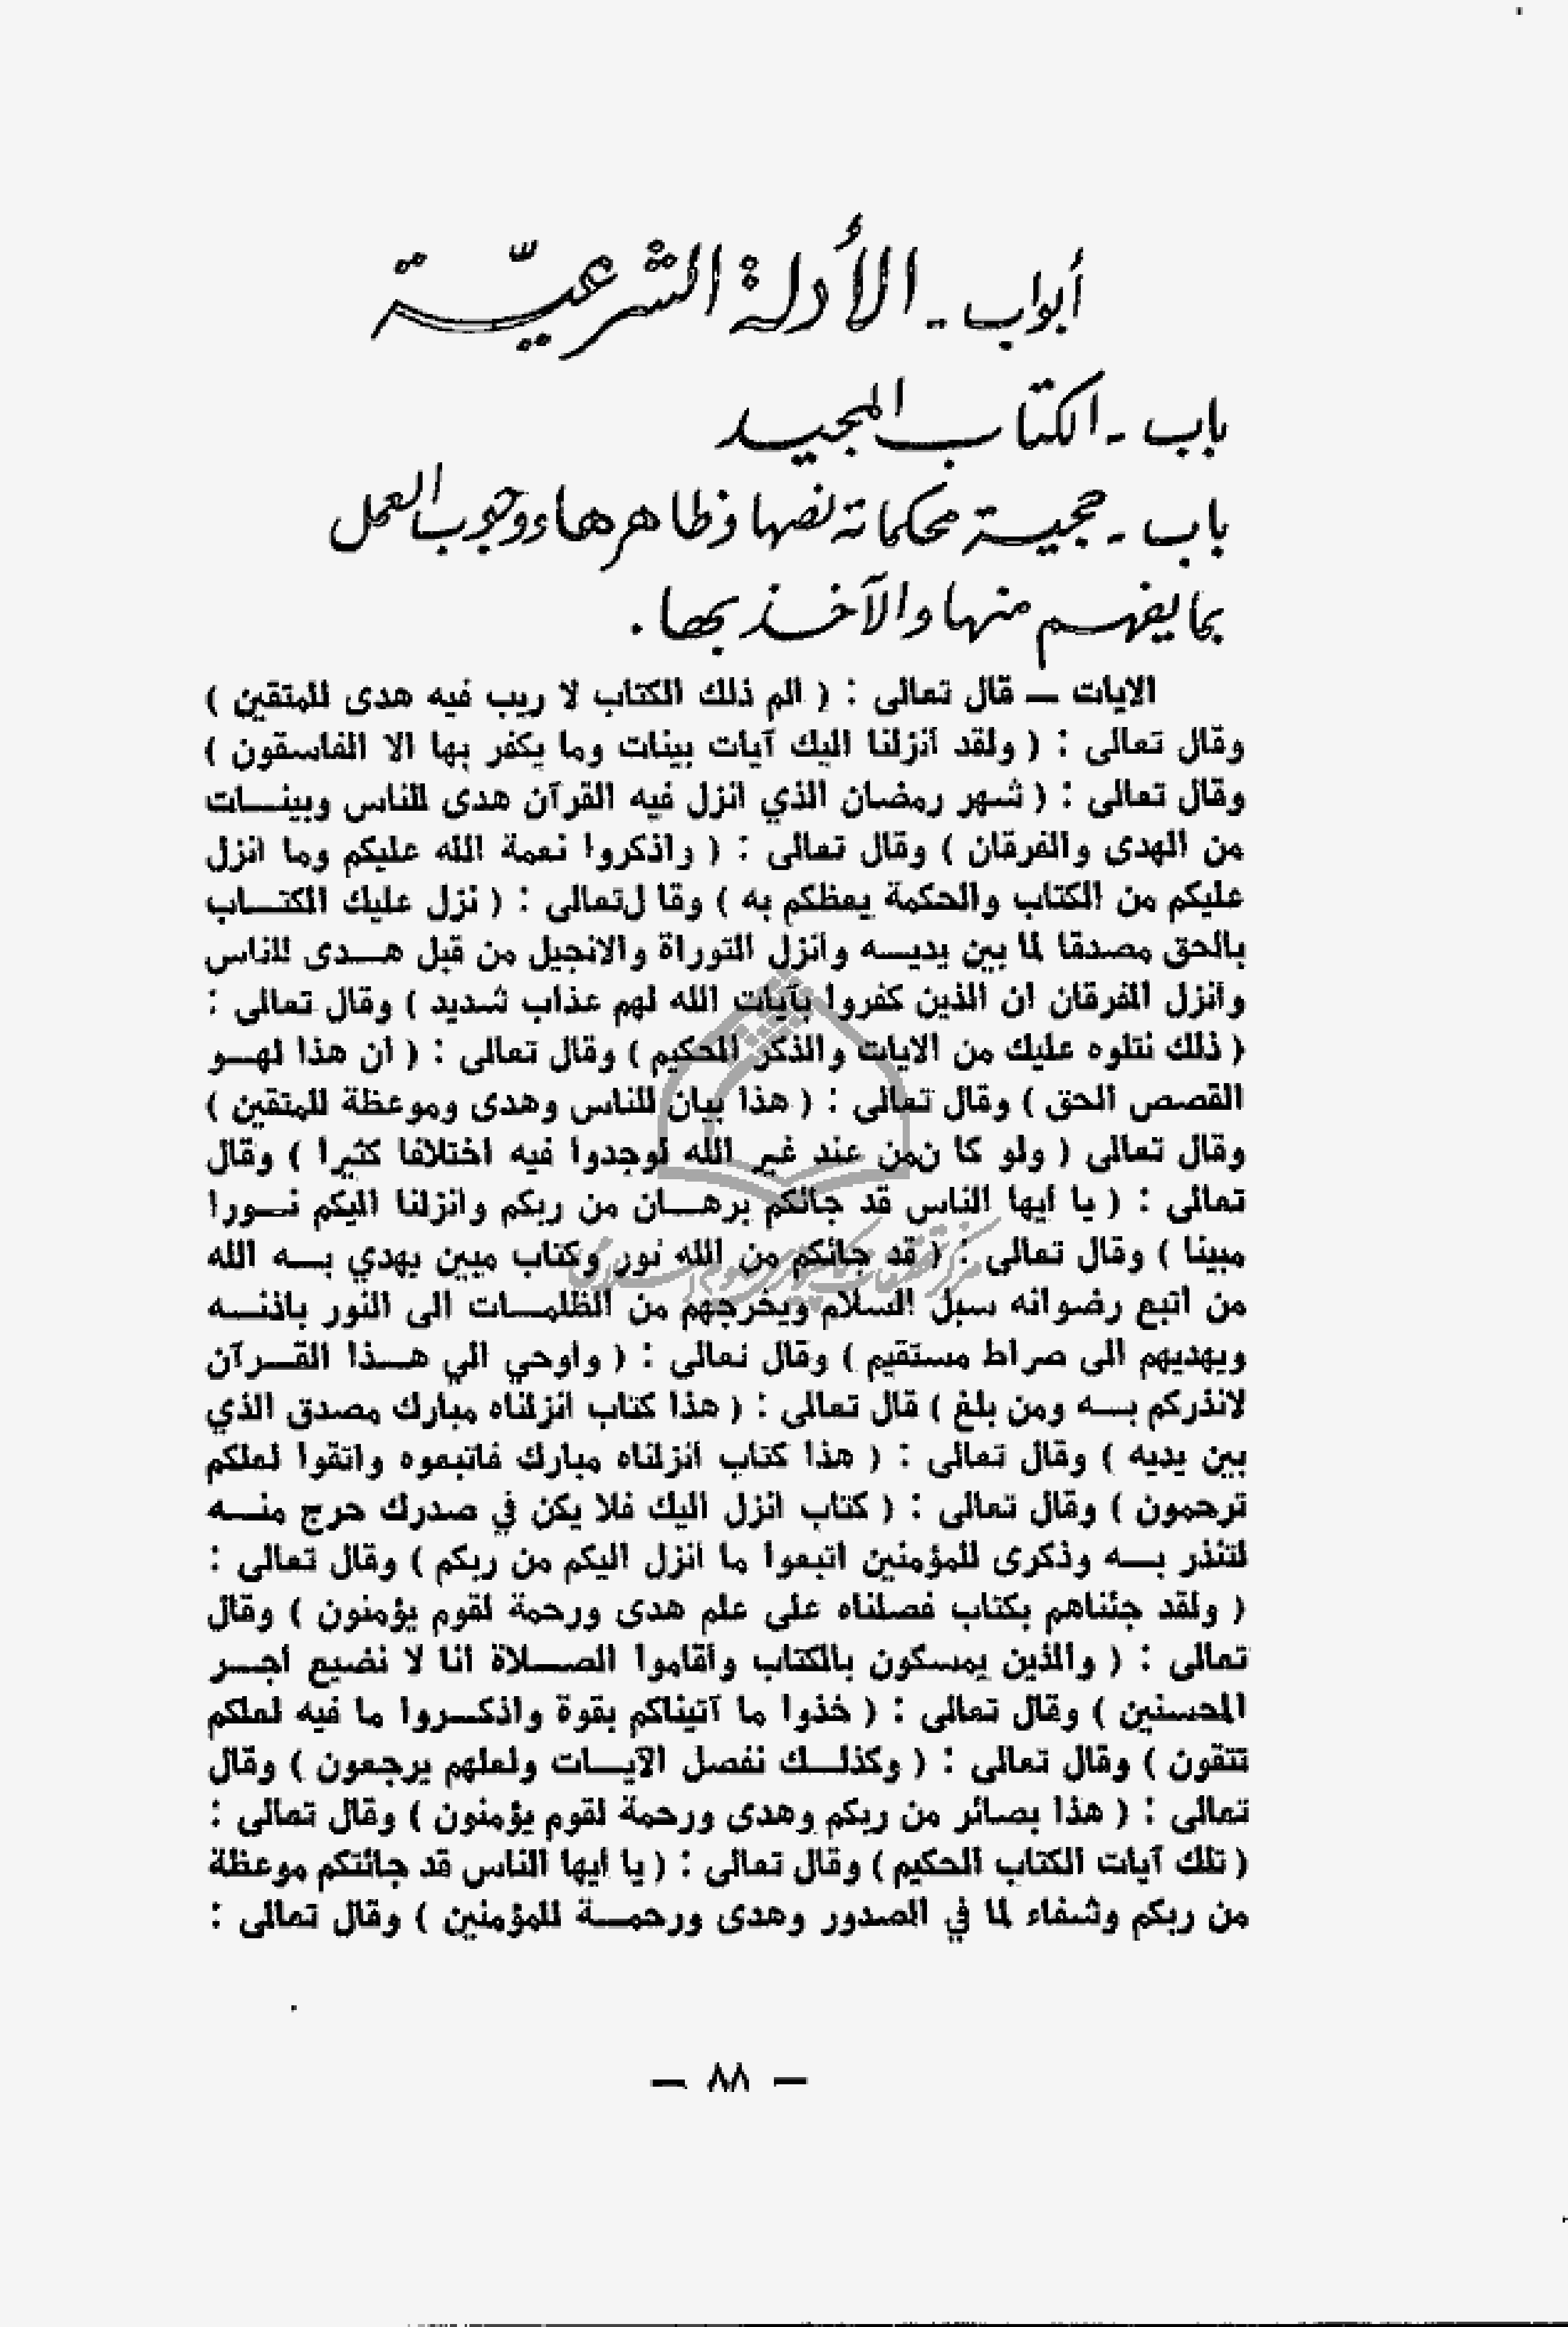 أبواب - الأدلة الشرعيّة
باب - الكتاب المجيد
باب - حجية محكماته نصها وظاهرها ووجوب العمل
بما يفهم منها والآخذ بها .
الايات — قال تعالى : ( الم ذلك الكتاب لا ريب فيه هدى للمتقين )
وقال تعالى : ( ولقد أنزلنا اليك آيات بينات وما يكفر بها الا الفاسقون )
وقال تعالى : ( شهر رمضان الذي انزل فيه القرآن هدى للناس وبينـــات
من الهدى والفرقان ) وقال تعالى : ( واذكروا نعمة الله عليكم وما انزل
عليكم من الكتاب والحكمة يعظكم به ) وقا لتعالى : ( نزل عليك الكتـــاب
بالحق مصدقا لما بين يديـــه وأنزل التوراة والانجيل من قبل هـــدى للناس
وأنزل الفرقان ان الذين كفروا بآيات الله لهم عذاب شديد ) وقال تعالى :
( ذلك نتلوه عليك من الايات والذكر الحكيم ) وقال تعالى : ( ان هذا لهـــو
القصص الحق ) وقال تعالى : ( هذا بيان للناس وهدى وموعظة للمتقين )
وقال تعالى ( ولو كا نمن عند غير الله لوجدوا فيه اختلافا كثيرا ) وقال
تعالى : ( يا أيها الناس قد جائكم برهـــان من ربكم وانزلنا اليكم نـــورا
مبينا ) وقال تعالى : ( قد جائكم من الله نور وكتاب مبين يهدي بـــه الله
من اتبع رضوانه سبل السلام ويخرجهم من الظلمـــات الى النور باذنـــه
ويهديهم الى صراط مستقيم ) وقال تعالى : ( واوحي الي هـــذا القـــرآن
لانذركم بـــه ومن بلغ ) قال تعالى : ( هذا كتاب انزلناه مبارك مصدق الذي
بين يديه ) وقال تعالى : ( هذا كتاب انزلناه مبارك فاتبعوه واتقوا لعلكم
ترحمون ) وقال تعالى : ( كتاب انزل اليك فلا يكن في صدرك حرج منـــه
لتنذر بـــه وذكرى للمؤمنين اتبعوا ما أنزل اليكم من ربكم ) وقال تعالى :
( ولقد جئناهم بكتاب فصلناه على علم هدى ورحمة لقوم يؤمنون ) وقال
تعالى : ( والذين يمسكون بالكتاب وأقاموا الصـــلاة انا لا نضيع اجـــر
المحسنين ) وقال تعالى : ( خذوا ما آتيناكم بقوة واذكـــروا ما فيه لعلكم
تتقون ) وقال تعالى : ( وكذلـــك نفصل الآيـــات ولعلهم يرجعون ) وقال
تعالى : ( هذا بصائر من ربكم وهدى ورحمة لقوم يؤمنون ) وقال تعالى :
( تلك آيات الكتاب الحكيم ) وقال تعالى : ( يا أيها الناس قد جائتكم موعظة
من ربكم وشفاء لما في الصدور وهدى ورحمـــة للمؤمنين ) وقال تعالى :
— ٨٨ —